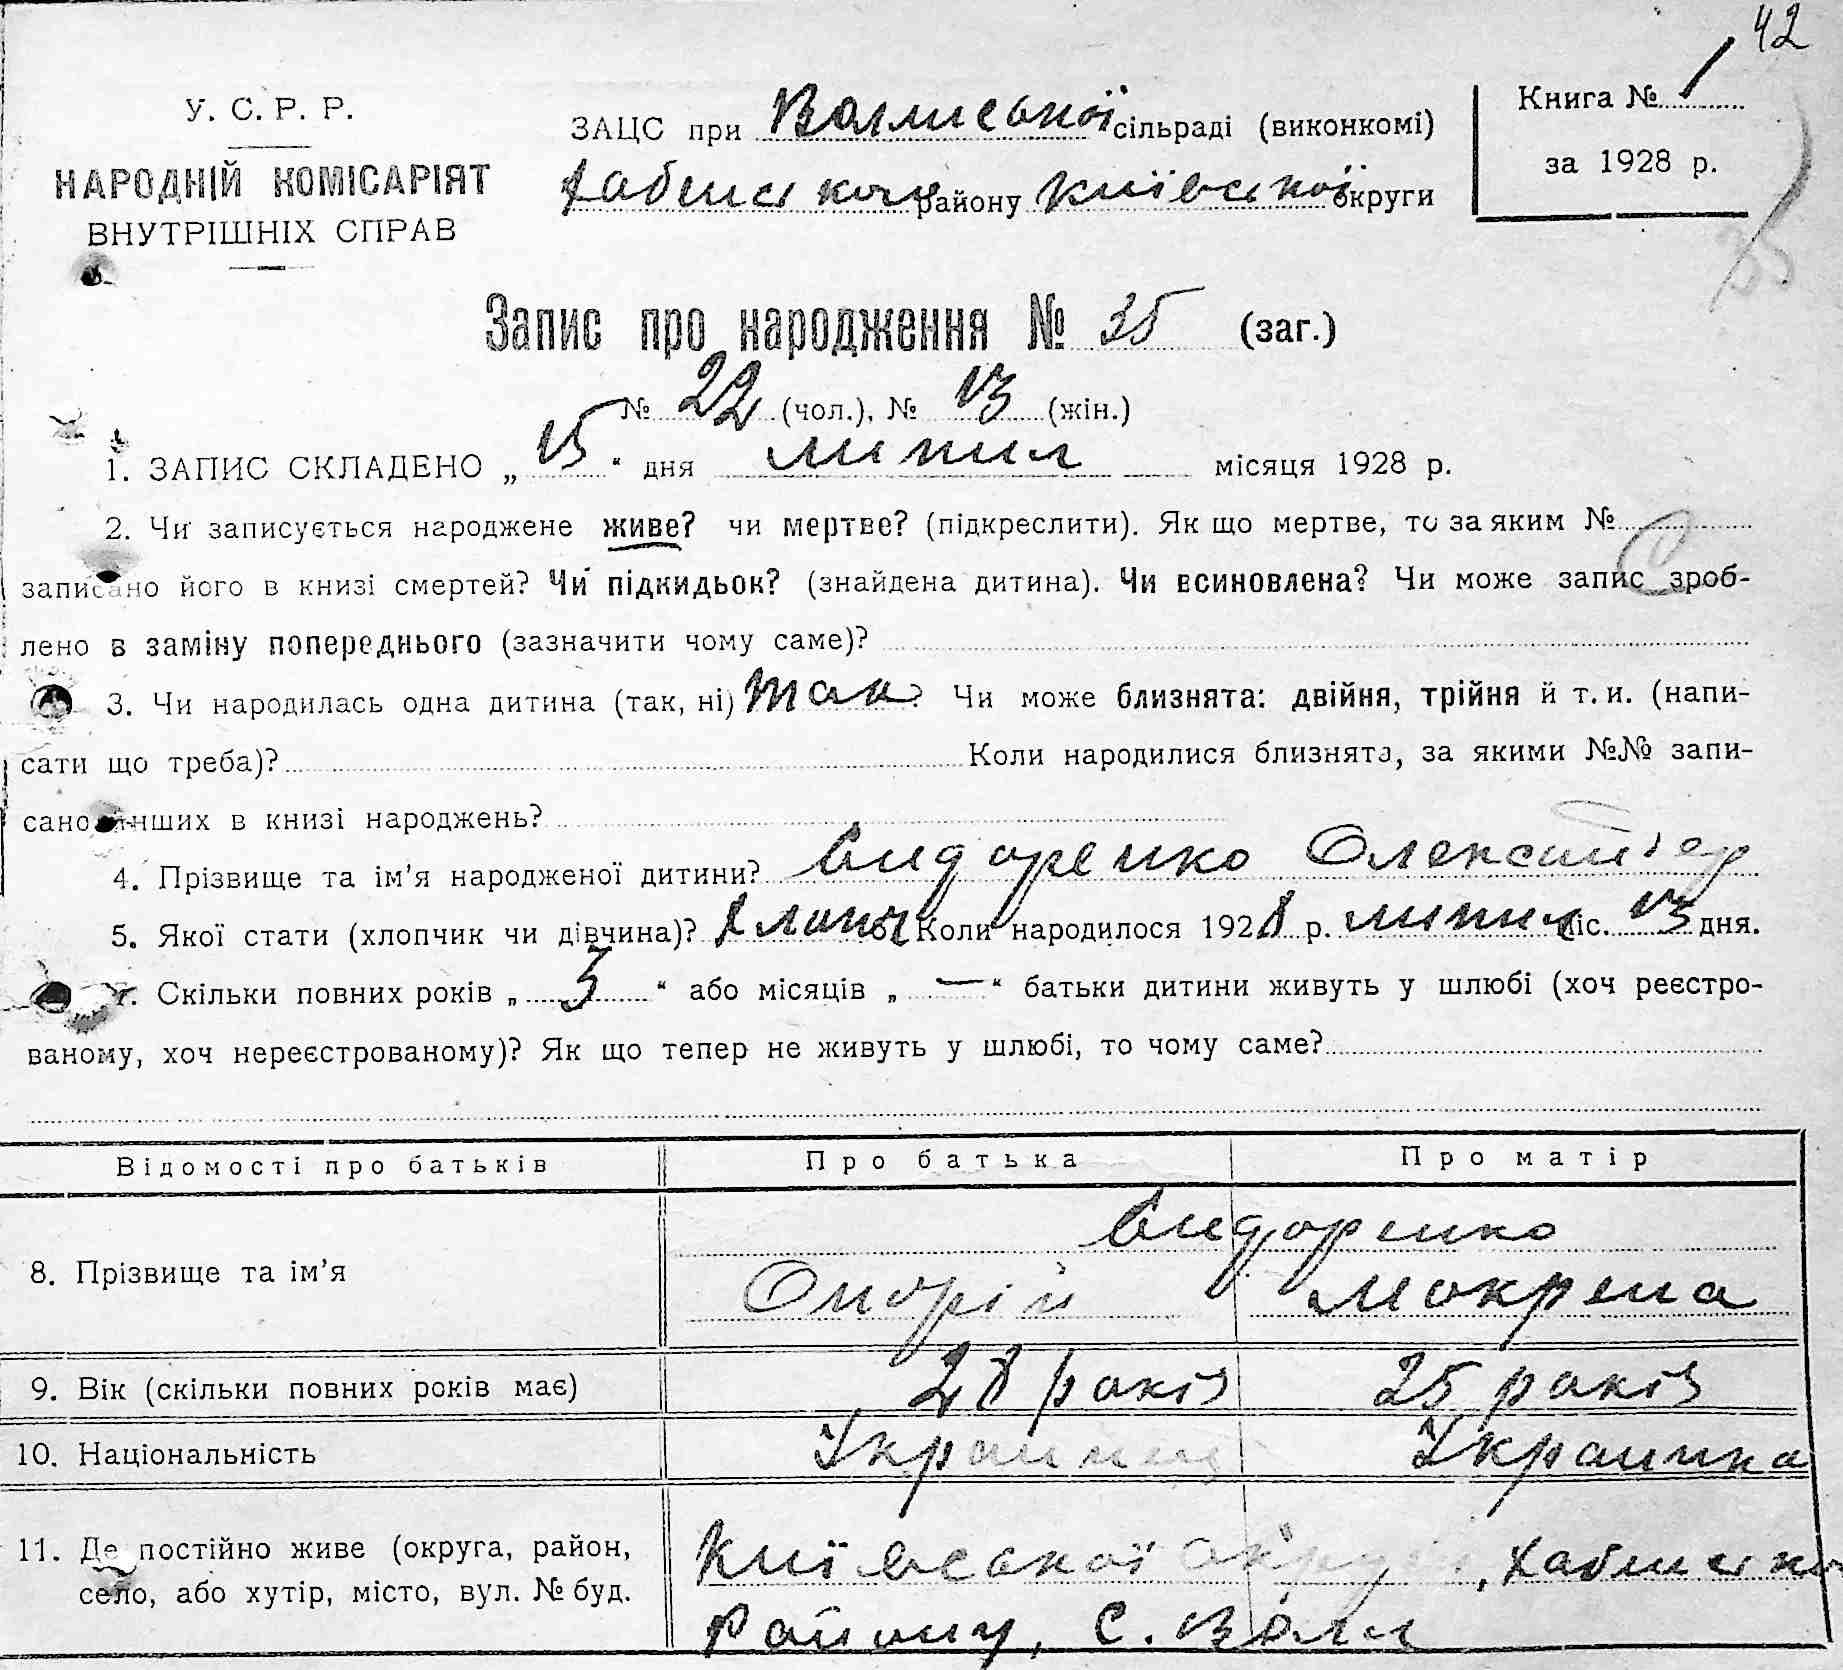 42
У. С. Р. Р.
НАРОДНІЙ КОМІСАРІЯТ
ВНУТРІШНІХ СПРАВ
ЗАЦС при Волянської сільраді (виконкомі)
Хабенського району Київської округи
Книга № 1
за 1928 р.
35
Запис про народження № 35 (заг.)
№ 22 (чол.), № 13 (жін.)
1. ЗАПИС СКЛАДЕНО „ 15 “ дня липня місяця 1928 р.
2. Чи записується народжене живе? чи мертве? (підкреслити). Як що мертве, то за яким №
записано його в книзі смертей? Чи підкидьок? (знайдена дитина). Чи всиновлена? Чи може запис зроб-
лено в заміну попереднього (зазначити чому саме)?
3. Чи народилась одна дитина (так, ні) так? Чи може близнята: двійня, трійня й т. и. (напи-
сати що треба)? Коли народилися близнята, за якими №№ запи-
сано інших в книзі народжень?
4. Прізвище та ім’я народженої дитини? Сидоренко
5. Якої стати (хлопчик чи дівчина)? Хлопч Коли народилося 1928 р. липня міс. 13 дня.
7. Скільки повних років „ 3 “ або місяців „ — “ батьки дитини живуть у шлюбі (хоч реєстро-
ваному, хоч нереєстрованому)? Як що тепер не живуть у шлюбі, то чому саме?
Відомості про батьків Про батька Про матір
Сидоренко
8. Прізвище та ім’я Онорій Мокрена
9. Вік (скільки повних років має) 28 років 25 років
10. Національність Украинец Украинка
11. Де постійно живе (округа, район, Київської округи, Хабенського
село, або хутір, місто, вул. № буд. Району, с. Воля